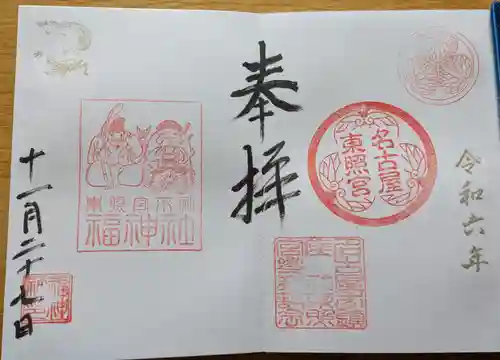 令和六年
名古屋
東照宮
奉拝
東照宮末社
福神社
十一月二十七日
福神